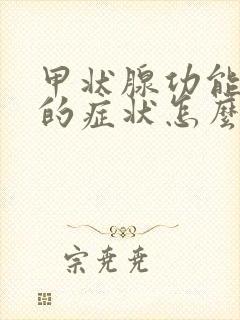 甲状腺功能
的症状怎麼
宗尧尧